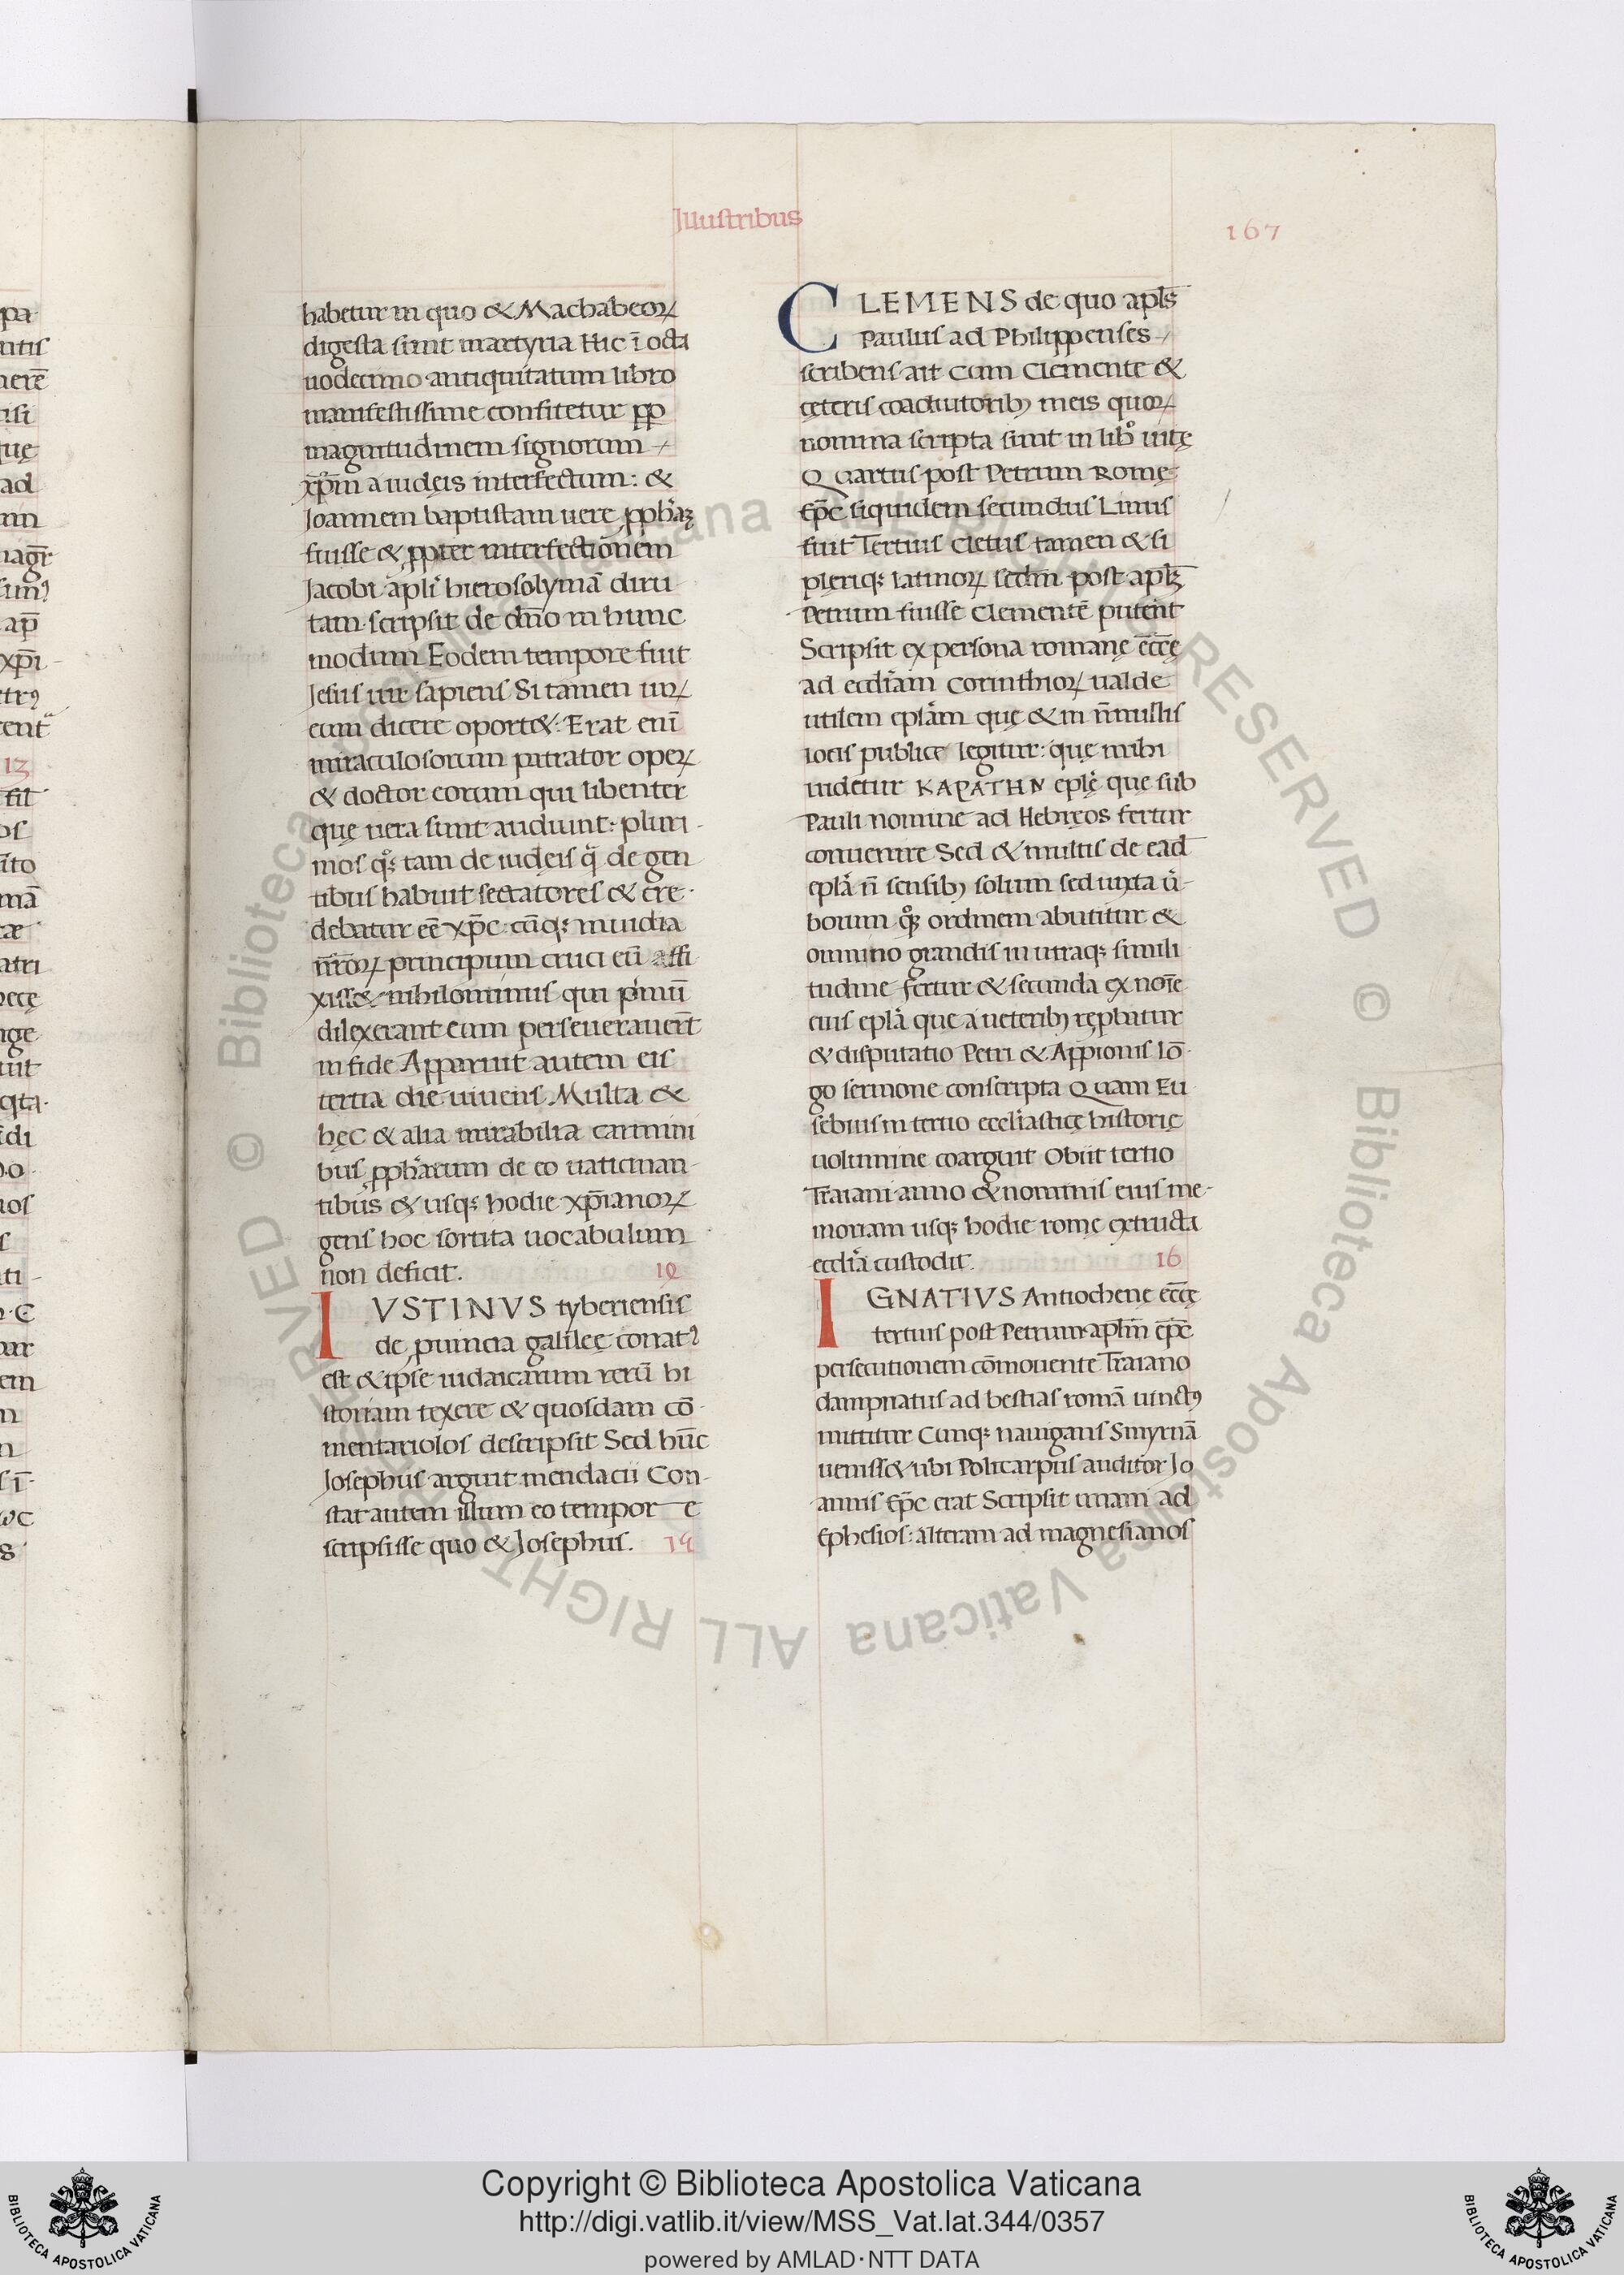 Illustribus
167
habetur in quo & Machabeoꝝ
digesta sunt martyria Hic ī octa
uodecimo antiquitatum libro
manifestissime confitetur ꝓp
magnitudinem signorum
xp̄m a iudęis interfectum: &
Joannem baptistam uere ꝓph̄aʒ
fuisse & ꝓpter interfectionem
Jacobi apl̄i hierosolymā diru
tam scripsit de dn̄o in hunc
modum Eodem tempore fuit
Jesus uir sapiens Si tamen uiꝝ
eum dicere oport&. Erat enī
miraculosorum patrator opeꝝ
& doctor eorum qui libenter
quę uera sunt audiunt: pluri-
mos qͦꝫ tam de iudęis q̄ de gen
tibus habuit sectatores & cre-
debatur eē xp̄c cūqꝫ inuidia
nr̄oꝝ principum cruci eū affi
xiss& nihilominus qui pͥmū
dilexerant eum perseuerauer̄t
in fide Apparuit autem eis
tertia die uiuens Multa &
hęc & alia mirabilia carmini
bus ꝓph̄arum de eo uaticinan-
tibus & usqꝫ hodie xp̄ianoꝝ
gens hoc sortita uocabulum
non deficit.
IVSTINVS tyberiensis
de ꝓuincia galileę conatꝰ
est & ipse iudaicarum rerū hi
storiam texere & quosdam cō-
mentariolos descripsit Sed hūc
Josephus arguit mendacii Con-
stat autem illum eo tempore
scripsisse quo & Josephus.
CLEMENS de quo apl̄s
Paulus ad Philippenses
scribens ait cum Clemente &
cęteris coadiutoribꝰ meis quoꝝ
nomina scripta sunt in libͦ uitę
Quartus post Petrum Romę
Ep̄c siquidem secundus Linus
fuit Tertius Cletus tamen & si
plęriqꝫ latinoꝝ sec̄dm post apl̄ʒ
Petrum fuisse Clementē putent
Scripsit ex persona romanę ec̄cę
ad eccl̄iam corinthioꝝ ualde
utilem epl̄am quę & in n̄nullis
locis publice legitur: quę mihi
uidetur ΚΑΡΑΤΗΝ epl̄ę que sub
Pauli nomine ad Hebręos fertur
conuenire Sed & multis de ead̄
epl̄a n̄ sensibꝰ solum sed iuxta ū-
borum qͦꝫ ordinem abutitur &
omnino grandis in utraqꝫ simili
tudine fertur & secunda ex noīe
eius epl̄a que a ueteribꝰ ręp̱batur
& disputatio Petri & Appionis lō-
go sermone conscripta Quam Eu
sebius in tertio eccl̄iasticę historię
uolumine coarguit Obiit tertio
Traiani anno & nominis eius me-
moriam usqꝫ hodie romę extructa
eccl̄ia custodit.
16
IGNATIVS Antiochenę ec̄cę
tertius post Petrum apl̄m ep̄c
persecutionem cōmouente Traiano
dampnatus ad bestias romā uinctꝰ
mittitur Cunqꝫ nauigans Smyrnā
ueniss& ubi Policarpus auditor Jo
annis Ep̄c erat Scripsit unam ad
Ephesios: alteram ad magnesianos
Copyright © Biblioteca Apostolica Vaticana
http://digi.vatlib.it/view/MSS_Vat.lat.344/0357
powered by AMLAD·NTT DATA
BIBLIOTECA APOSTOLICA VATICANA
BIBLIOTECA APOSTOLICA VATICANA